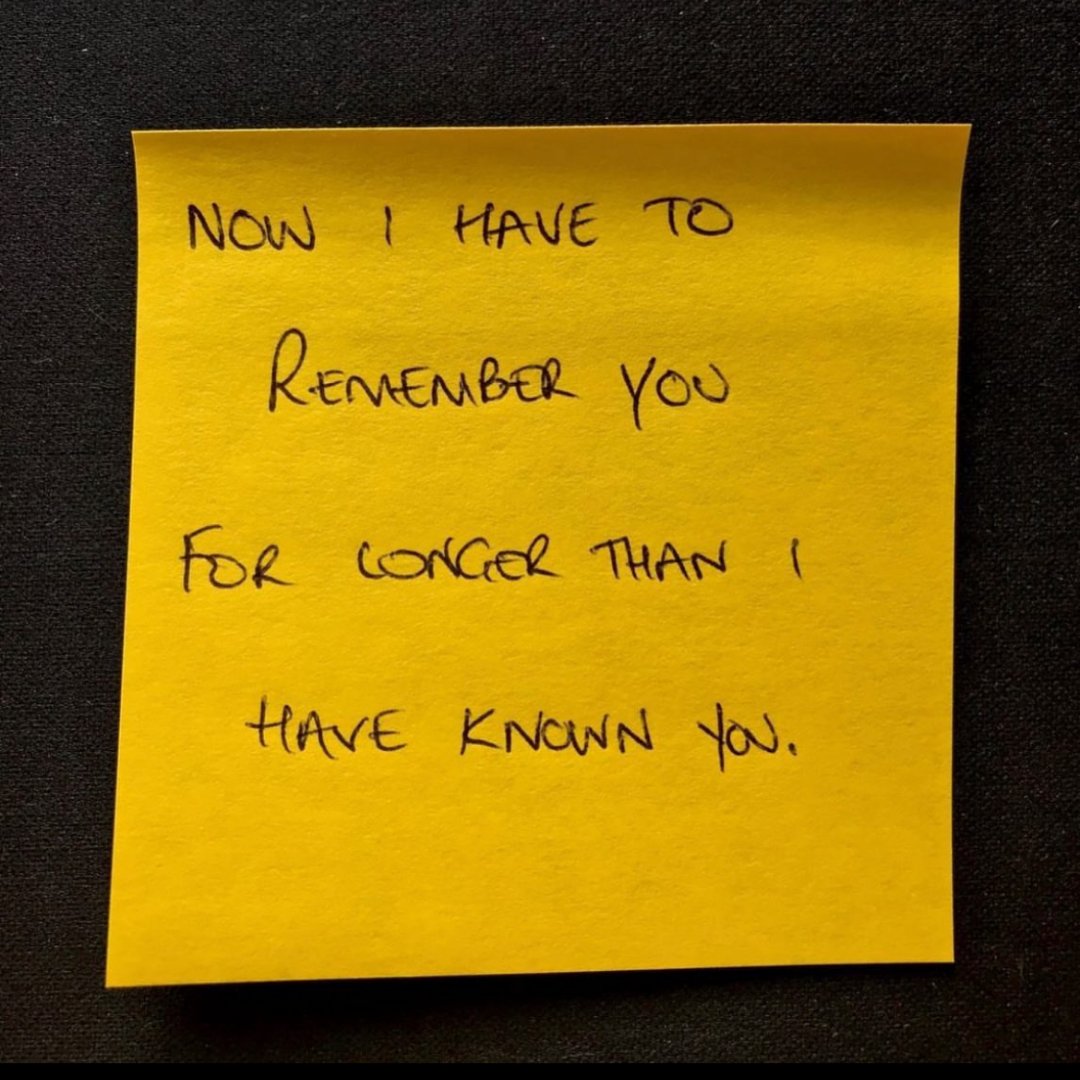 NOW I HAVE TO
REMEMBER YOU
FOR LONGER THAN I
HAVE KNOWN YOU.